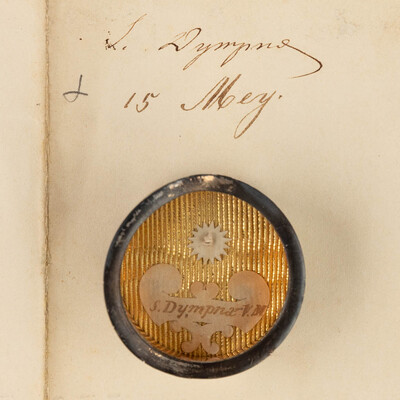 S. Dympnæ
15 Mey.
S. Dympnæ V. M